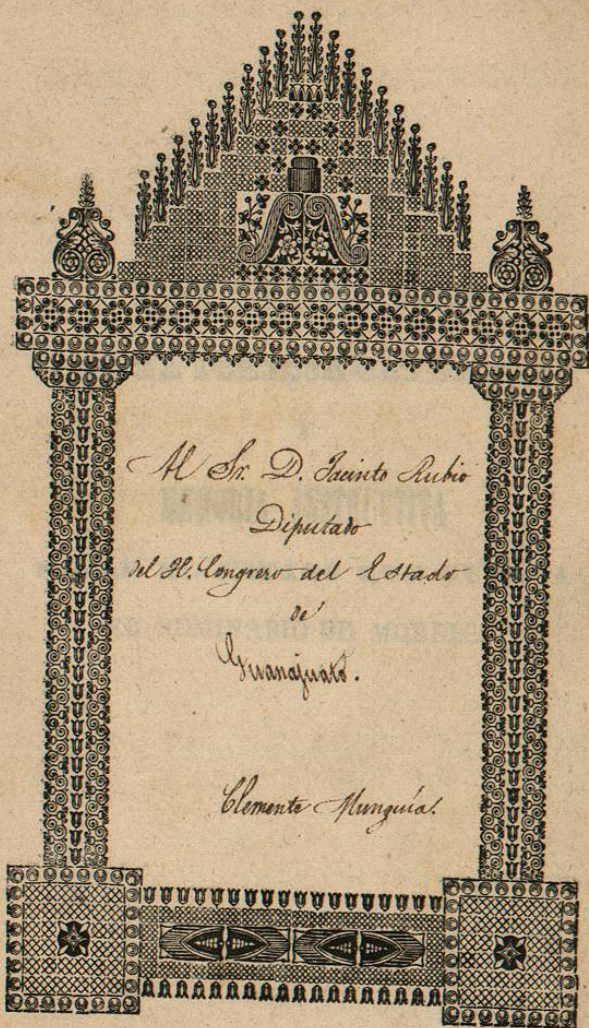 Al Sr. D. Jacinto Rubio
Diputado
del H. Congreso del Estado
de
Guanajuato.
Clemente Munguía.